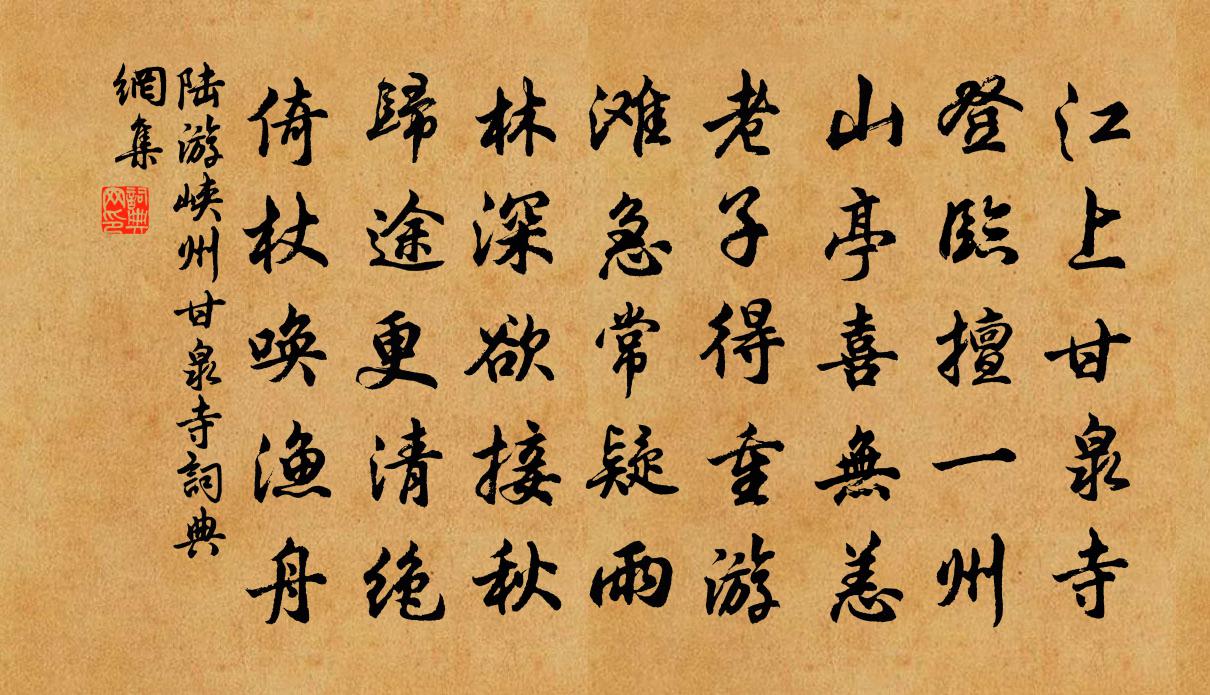 江上甘泉寺
登臨擅一州
山亭喜無恙
老子得重游
滩急常疑雨
林深欲接秋
歸途更清绝
倚杖唤漁舟
陆游峡州甘泉寺詞典
網集
詞典
网印